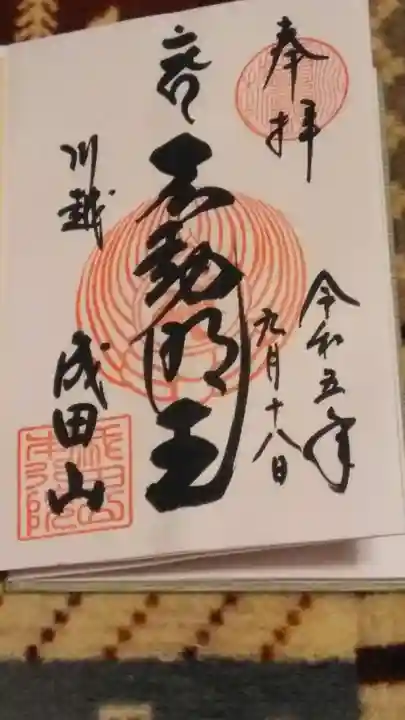 奉拝
令和五年
九月十八日
不動明王
川越
成田山